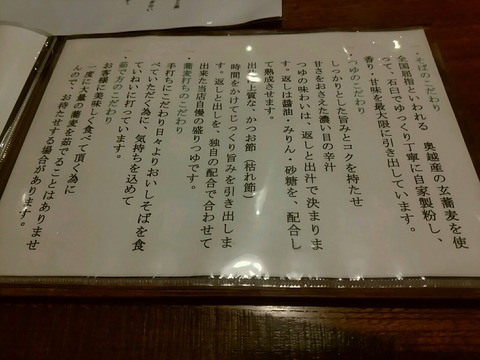 ・そばのこだわり
全国屈指といわれる 奥越産の玄蕎麦を使
って、石臼でゆっくり丁寧に自家製粉し、
香り・甘味を最大限に引き出しています。
・つゆのこだわり
しっかりとした旨みとコクを持たせ
甘さをおさえた濃い目の辛汁
つゆの味わいは、返しと出汁で決まりま
す。返しは醤油・みりん・砂糖を、配合し
て熟成させます。
出しは上質な、かつお節（枯れ節）
時間をかけてじっくり旨みを引き出しま
す。返しと出しを、独自の配合で合わせて
出来た当店自慢の盛りつゆです。
・蕎麦打ちのこだわり
手打ちにこだわり日々よりおいしそばを食
べていただく為に、気持ちを込めて
ていねいに打っています。
茹で方のこだわり
お客様に美味しく食べて頂く為に
一度に大量の蕎麦を茹でることはありませ
んので、お待たせする場合があります。